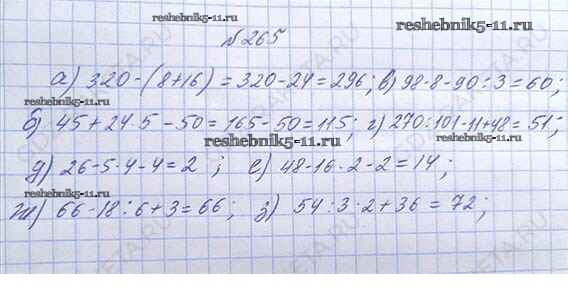 reshebnik5-11.ru reshebnik5-11.ru
№265
а) 320-(8+16) = 320-24=296; в) 98-8-90:3=60;
reshebnik5-11.ru
б) 45+24·5-50=165-50=115; г) 270:10)-11+48=51;
reshebnik5-11.ru
reshebnik5-11.ru
д) 26-5·4-4=2; е) 48-16·2-2=14;
reshebnik5-11.ru
ж) 66-18:6+3=66; з) 54:3·2+36=72;
reshebnik5-11.ru